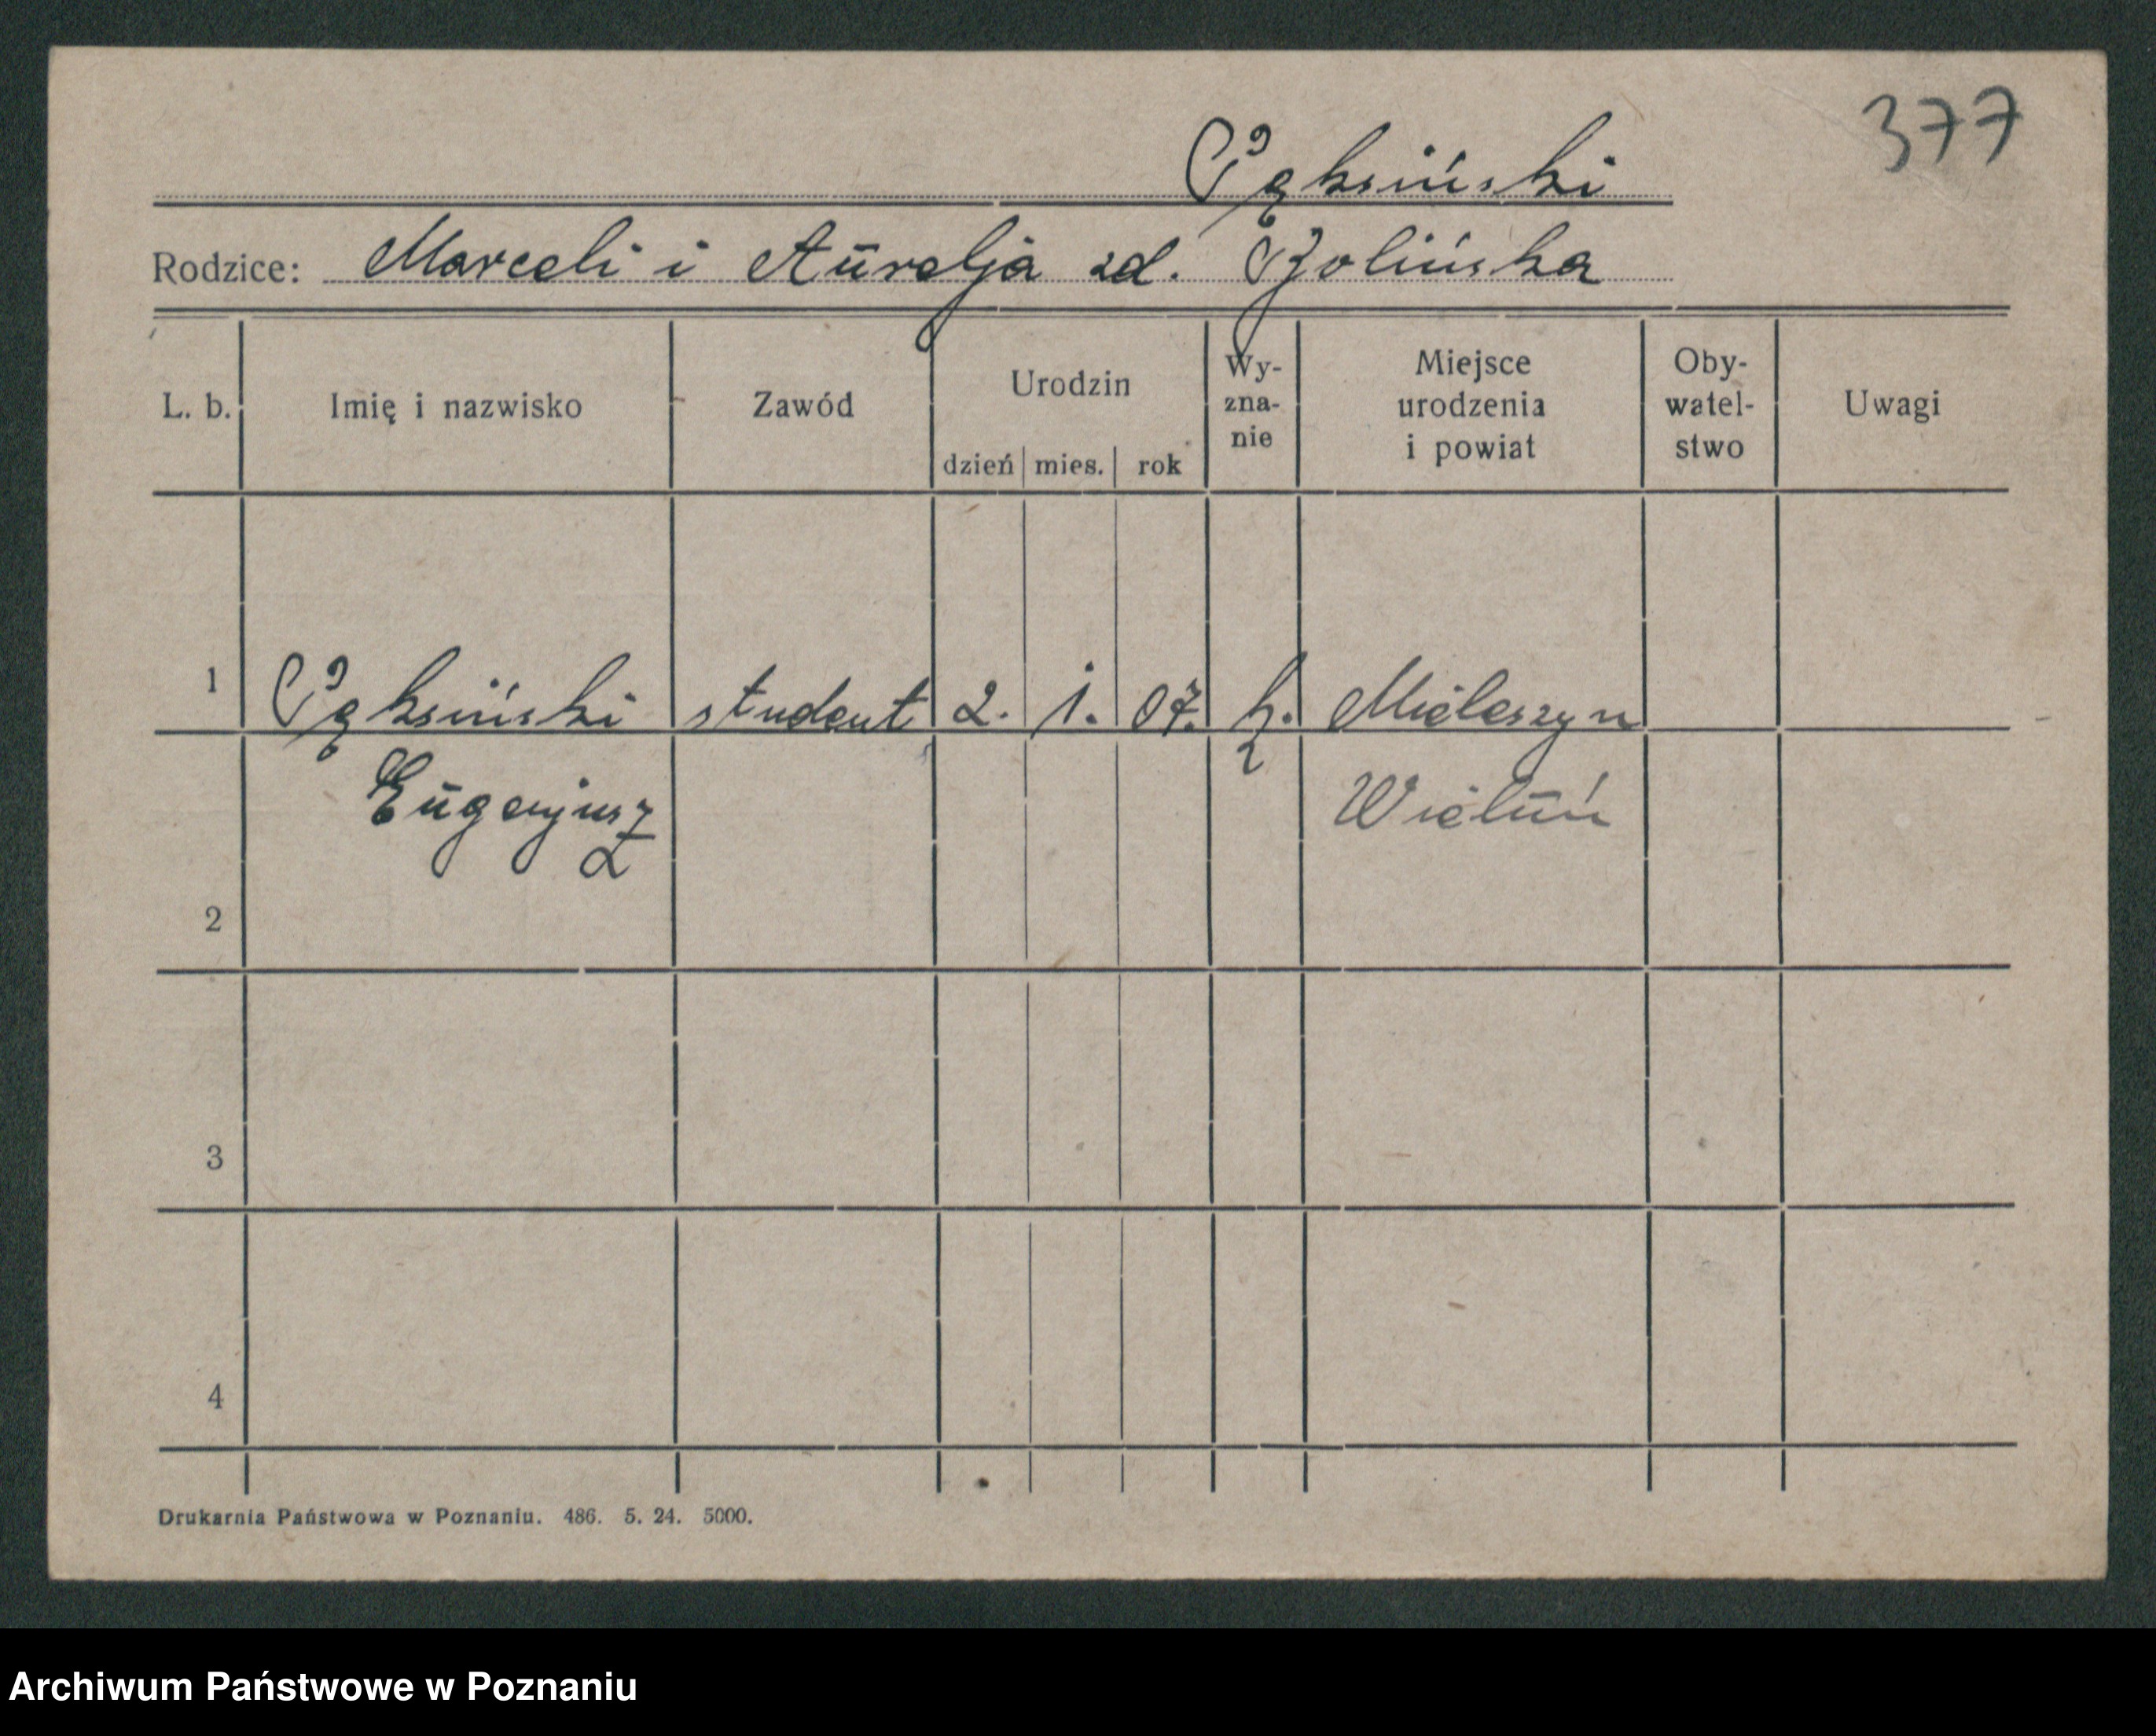 377
Pęksiński
Rodzice: Marceli i Aurelja zd. Zolińska
L. b. Imię i nazwisko Zawód Urodzin dzień mies. rok Wy-zna-nie Miejsce urodzenia i powiat Oby-watel-stwo Uwagi
1 Pęksiński student 2. 1. 07. k. Mieleszyn
Eugenjusz Wieluń
2
3
4
Drukarnia Państwowa w Poznaniu. 486. 5. 24. 5000.
Archiwum Państwowe w Poznaniu